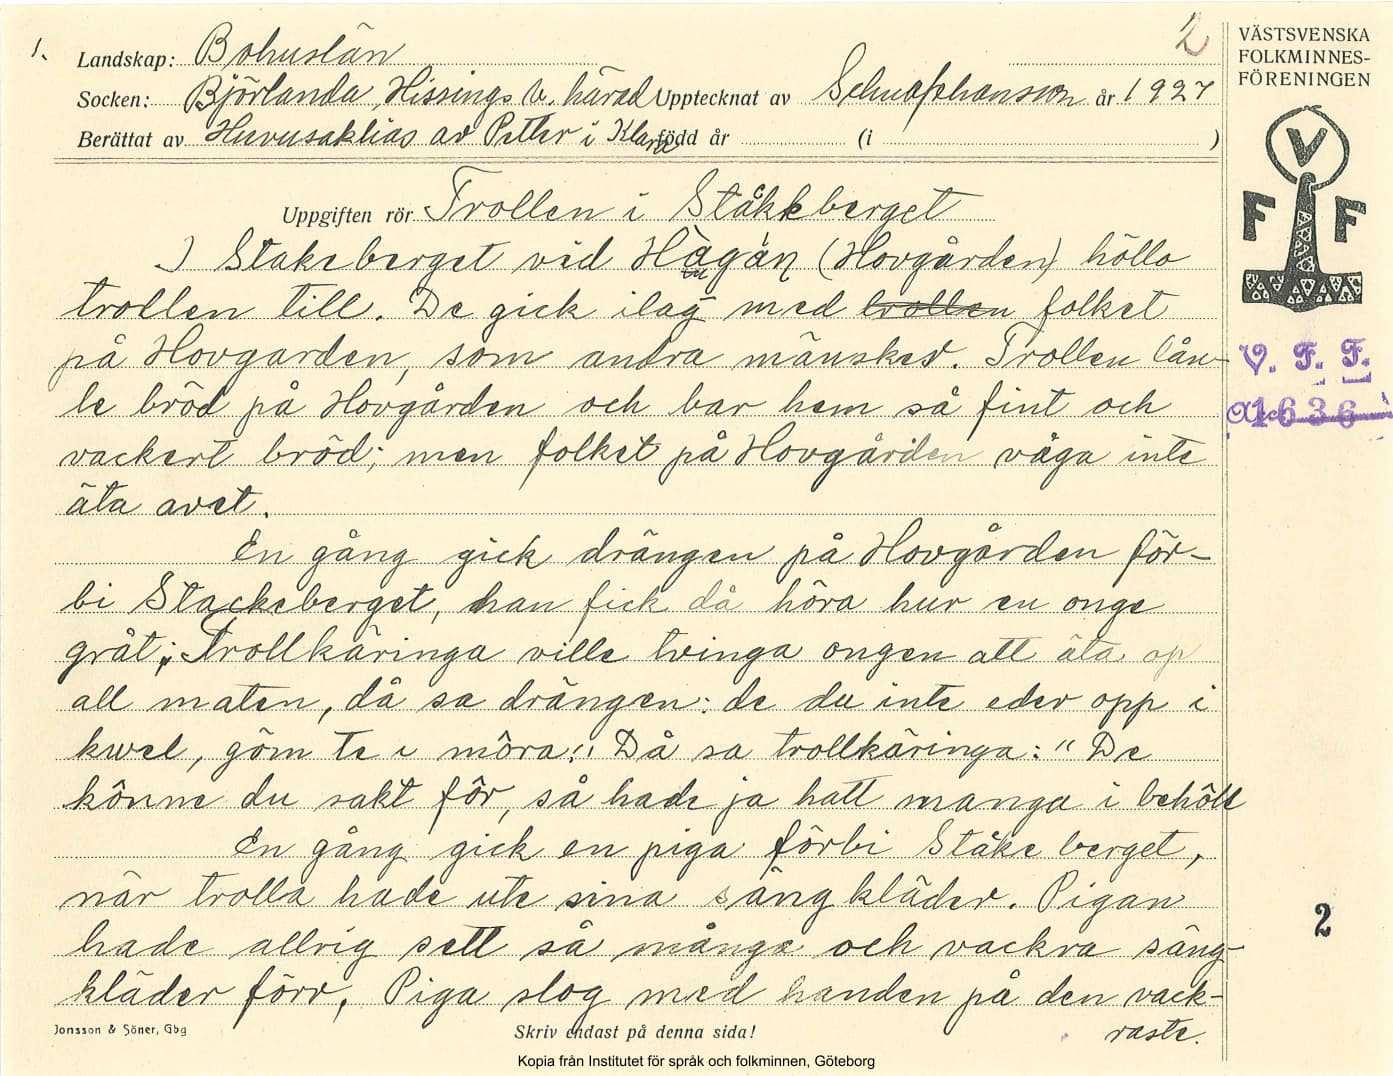 1.
2
Landskap: Bohuslän
Socken: Björlanda, Hissings v. härad Upptecknat av år 1927
Berättat av Huvusaklias av Petter i Klara född år (i )
Uppgiften rör Trollen i Ståkkberget
I Stakeberget vid (Hovgården) höllo
trollen till. De gick ilag med trollen folket
på Hovgarden, som andra mänsker. Trollen lån-
te bröd på Hovgården och bar hem så fint och
vackert bröd; men folket på Hovgården våga inte
äta avet.
En gång gick drängen på Hovgården för-
bi Stackeberget, han fick då höra hur en onge
gråt; Trollkäringa ville tvinga ongen att äta op
all maten, då sa drängen: de du inte eder opp i
kwel, göm te i môra!" Då sa trollkäringa: "De
könne du sakt för, så hade ja hatt manga i behôll
En gång gick en piga förbi Ståke berget,
när trolla hade ute sina sängkläder. Pigan
hade allrig sett så många och vackra säng-
kläder förr, Piga slog med handen på den vack-
raste.
Jonsson & Söner, Gbg
Skriv endast på denna sida!
VÄSTSVENSKA
FOLKMINNES-
FÖRENINGEN
V
F F
V. F. F.
Acc 1636
2
Kopia från Institutet för språk och folkminnen, Göteborg